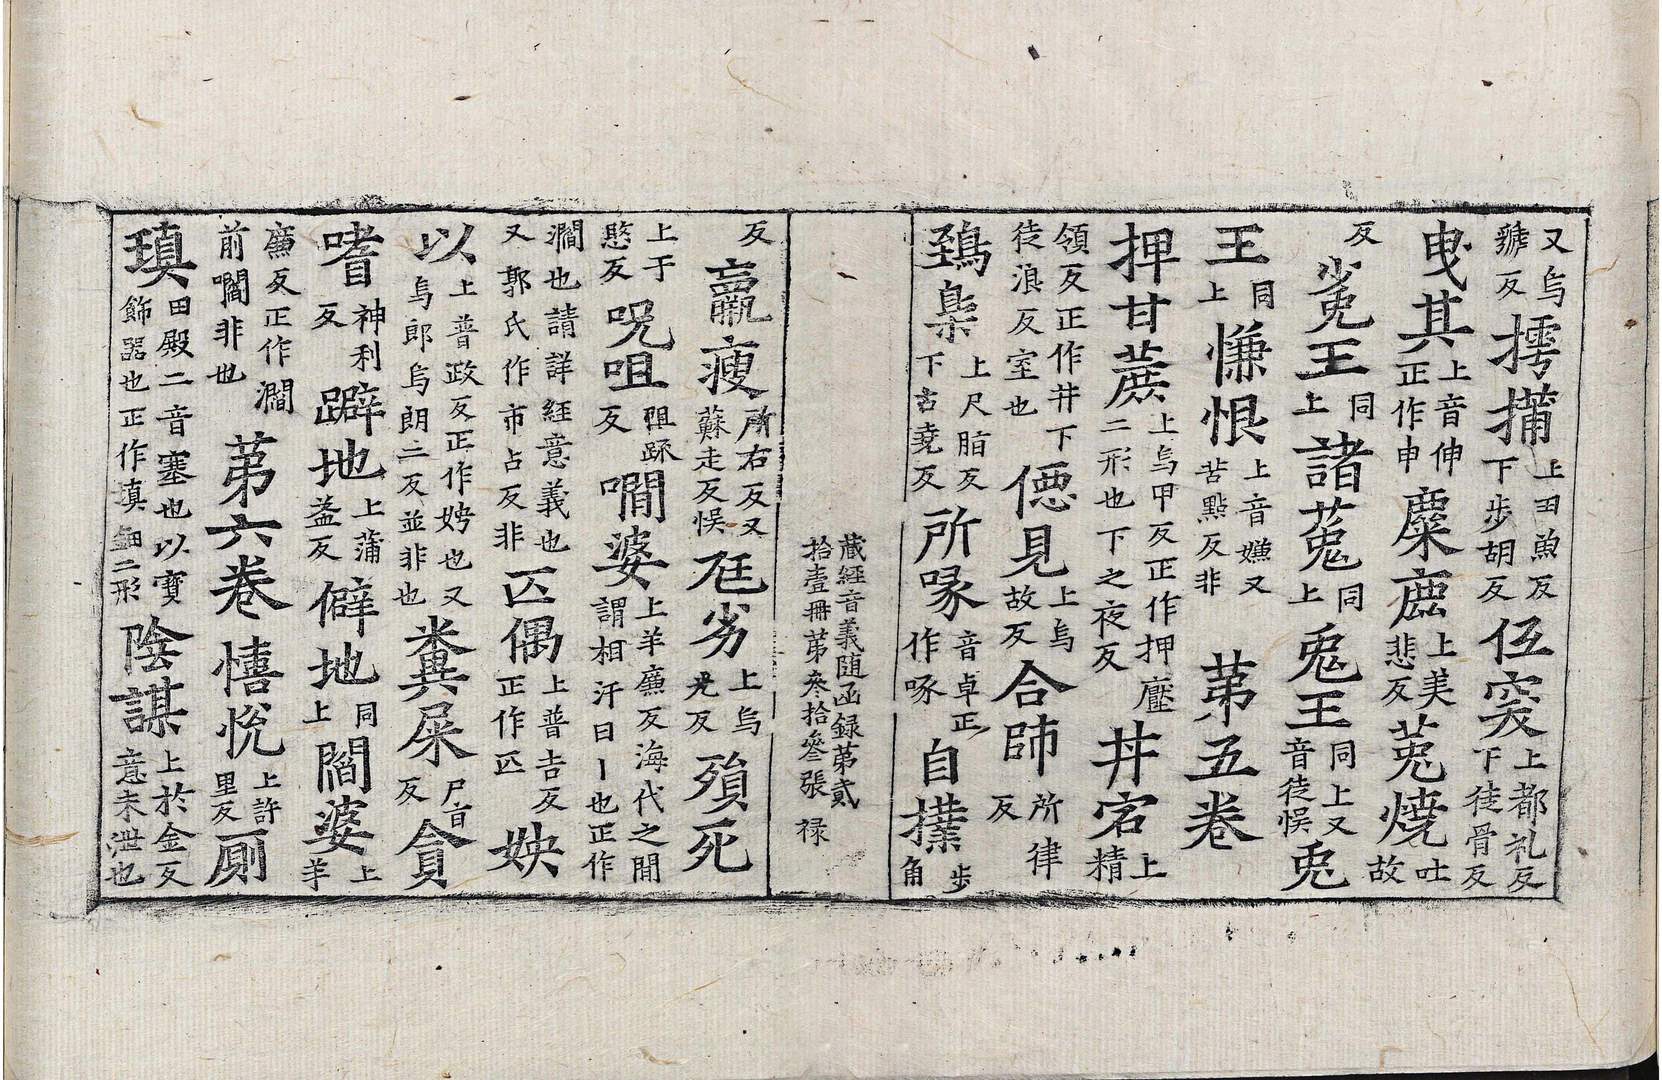 又烏號反摴蒱上田魚反下步胡反伍突上都礼反下徒骨反
曳其上音伸正作申麋鹿上美悲反菟燒吐故
反㲋王同上諸菟同上兎王同上又音徒悞兎
王同上慊恨上音嫌又苦點反非第五卷
押甘蔗上烏甲反正作押壓二形也下之夜反丼宕上精
領反正作井下徒浪反室也僫見上烏故反合師所律反
鵄梟上尺脂反下古堯反所啄音卓正作啄自撲步角
藏經音義随函録第貳拾壹冊第叄拾叄張 禄
反羸瘦所右反又蘇走反悞尫劣上烏光反殞死
上于愍反呪咀阻踈反㘎婆上羊廉反海代之閒謂相汙曰丨也正作
灁也請詳經意義也又郭氏作市占反非匹偶上普吉反正作匹姎
以上普政反正作娉也又烏郎烏朗二反並非也糞屎尸旨反貪
嗜神利反躃地上蒲益反僻地同上閻婆上羊
廉反正作灁前㘎非也第六卷憘悅上許里反厠
瑱田殿二音塞也以寳飾器也正作填鈿二形陰謀上於金反意未泄也